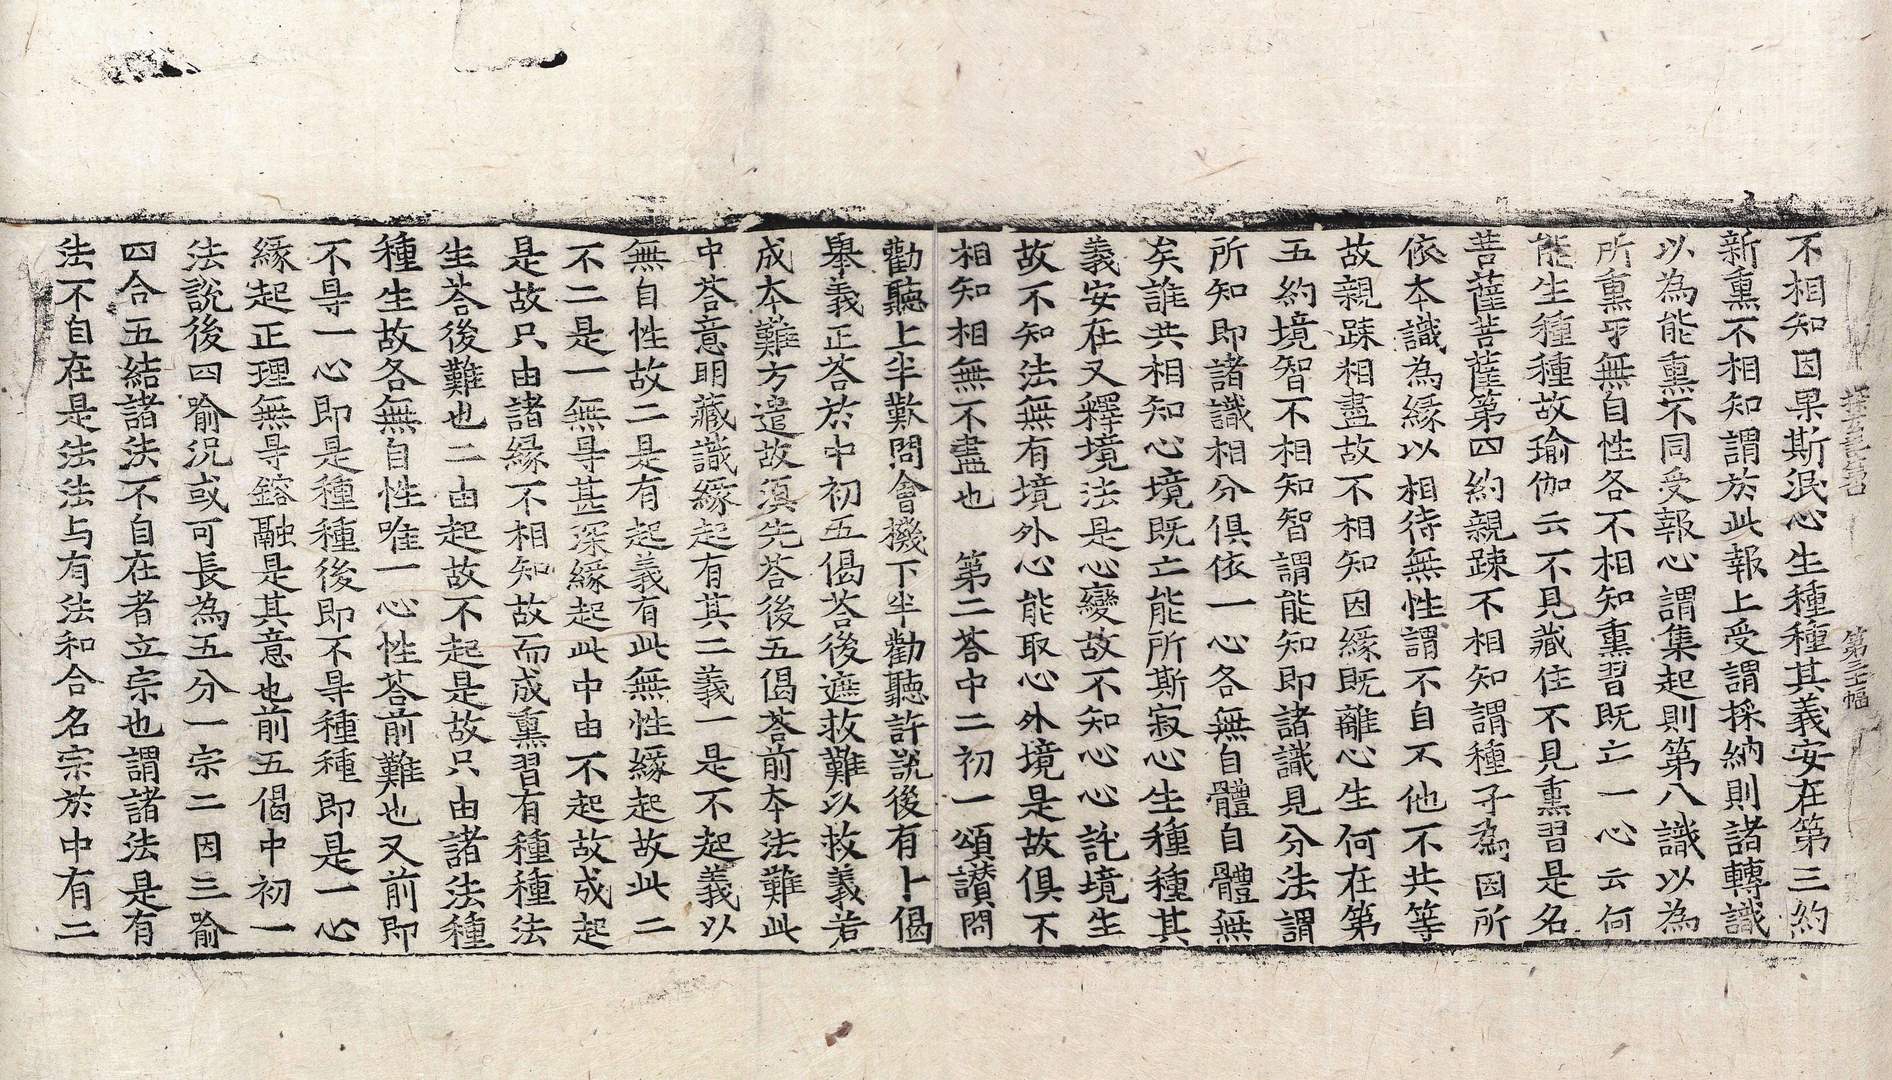 不相知因果斯泯心生種種其義安在第三約
新熏不相知謂於此報上受謂採納則諸轉識
以為能熏不同受報心謂集起則第八識以為
所熏㸦無自性各不相知熏習既亡一心云何
能生種種故瑜伽云不見藏住不見熏習是名
菩薩菩薩第四約親踈不相知謂種子為因所
依本識為緣以相待無性謂不自不他不共等
故親踈相盡故不相知因緣既離心生何在第
五約境智不相知智謂能知即諸識見分法謂
所知即諸識相分俱依一心各無自體自體無
矣誰共相知心境既亡能所斯寂心生種種其
義安在又釋境法是心變故不知心心託境生
故不知法無有境外心能取心外境是故俱不
相知相無不盡也　第二荅中二初一頌讃問
勸聽上半歎問會機下半勸聽許說後有卜偈
舉義正荅於中初五偈荅後遮救難以救義若
成本難方遣故湏先荅後五偈荅前本法難此
中荅意明藏識緣起有其二義一是不起義以
無自性故二是有起義有此無性緣起故此二
不二是一無㝵甚深緣起此中由不起故成起
是故只由諸緣不相知故而成熏習有種種法
生荅後難也二由起故不起是故只由諸法種
種生故各無自性唯一心性荅前難也又前即
不㝵一心即是種種後即不㝵種種即是一心
緣起正理無㝵鎔融是其意也前五偈中初一
法說後四喻況或可長為五分一宗二因三喻
四合五結諸法不自在者立宗也謂諸法是有
法不自在是法法与有法和合名宗於中有二